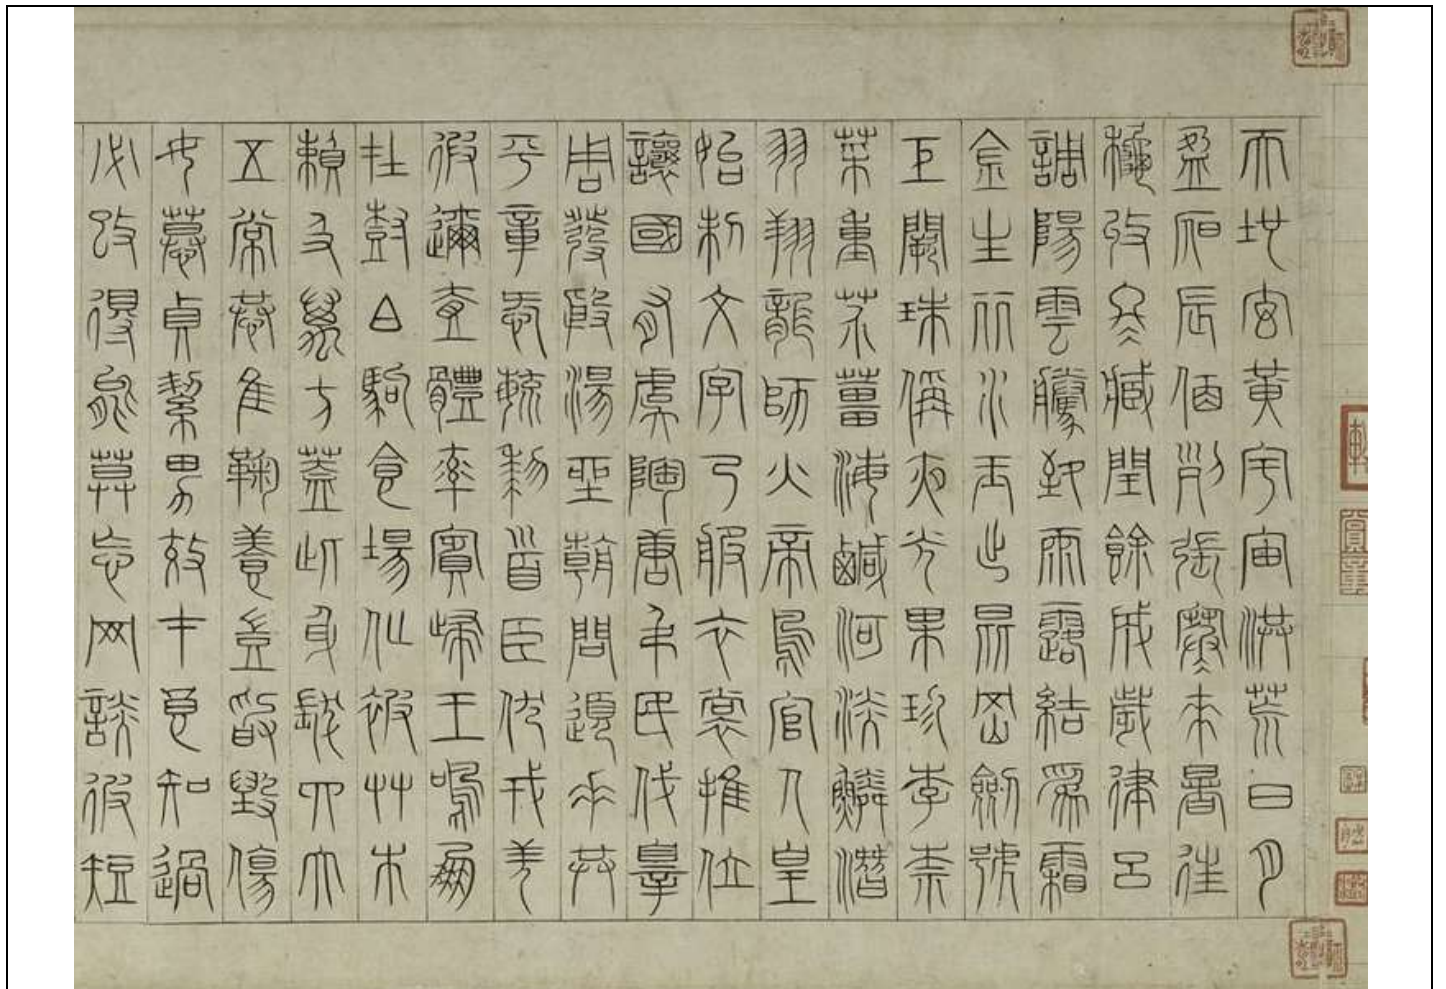 天地玄黃宇宙洪荒日月
盈昃辰宿列張寒來暑往
秋收冬藏閏餘成歲律呂
調陽雲騰致雨露結為霜
金生麗水玉出崑岡劍號
巨闕珠稱夜光果珍李柰
菜重芥薑海鹹河淡鱗潛
羽翔龍師火帝鳥官人皇
始制文字乃服衣裳推位
讓國有虞陶唐弔民伐罪
周發殷湯坐朝問道垂拱
平章愛育黎首臣伏戎羌
遐邇壹體率賓歸王鳴鳳
在樹白駒食場化被草木
賴及萬方蓋此身髮四大
五常恭惟鞠養豈敢毀傷
女慕貞絜男效才良知過
必改得能莫忘罔談彼短